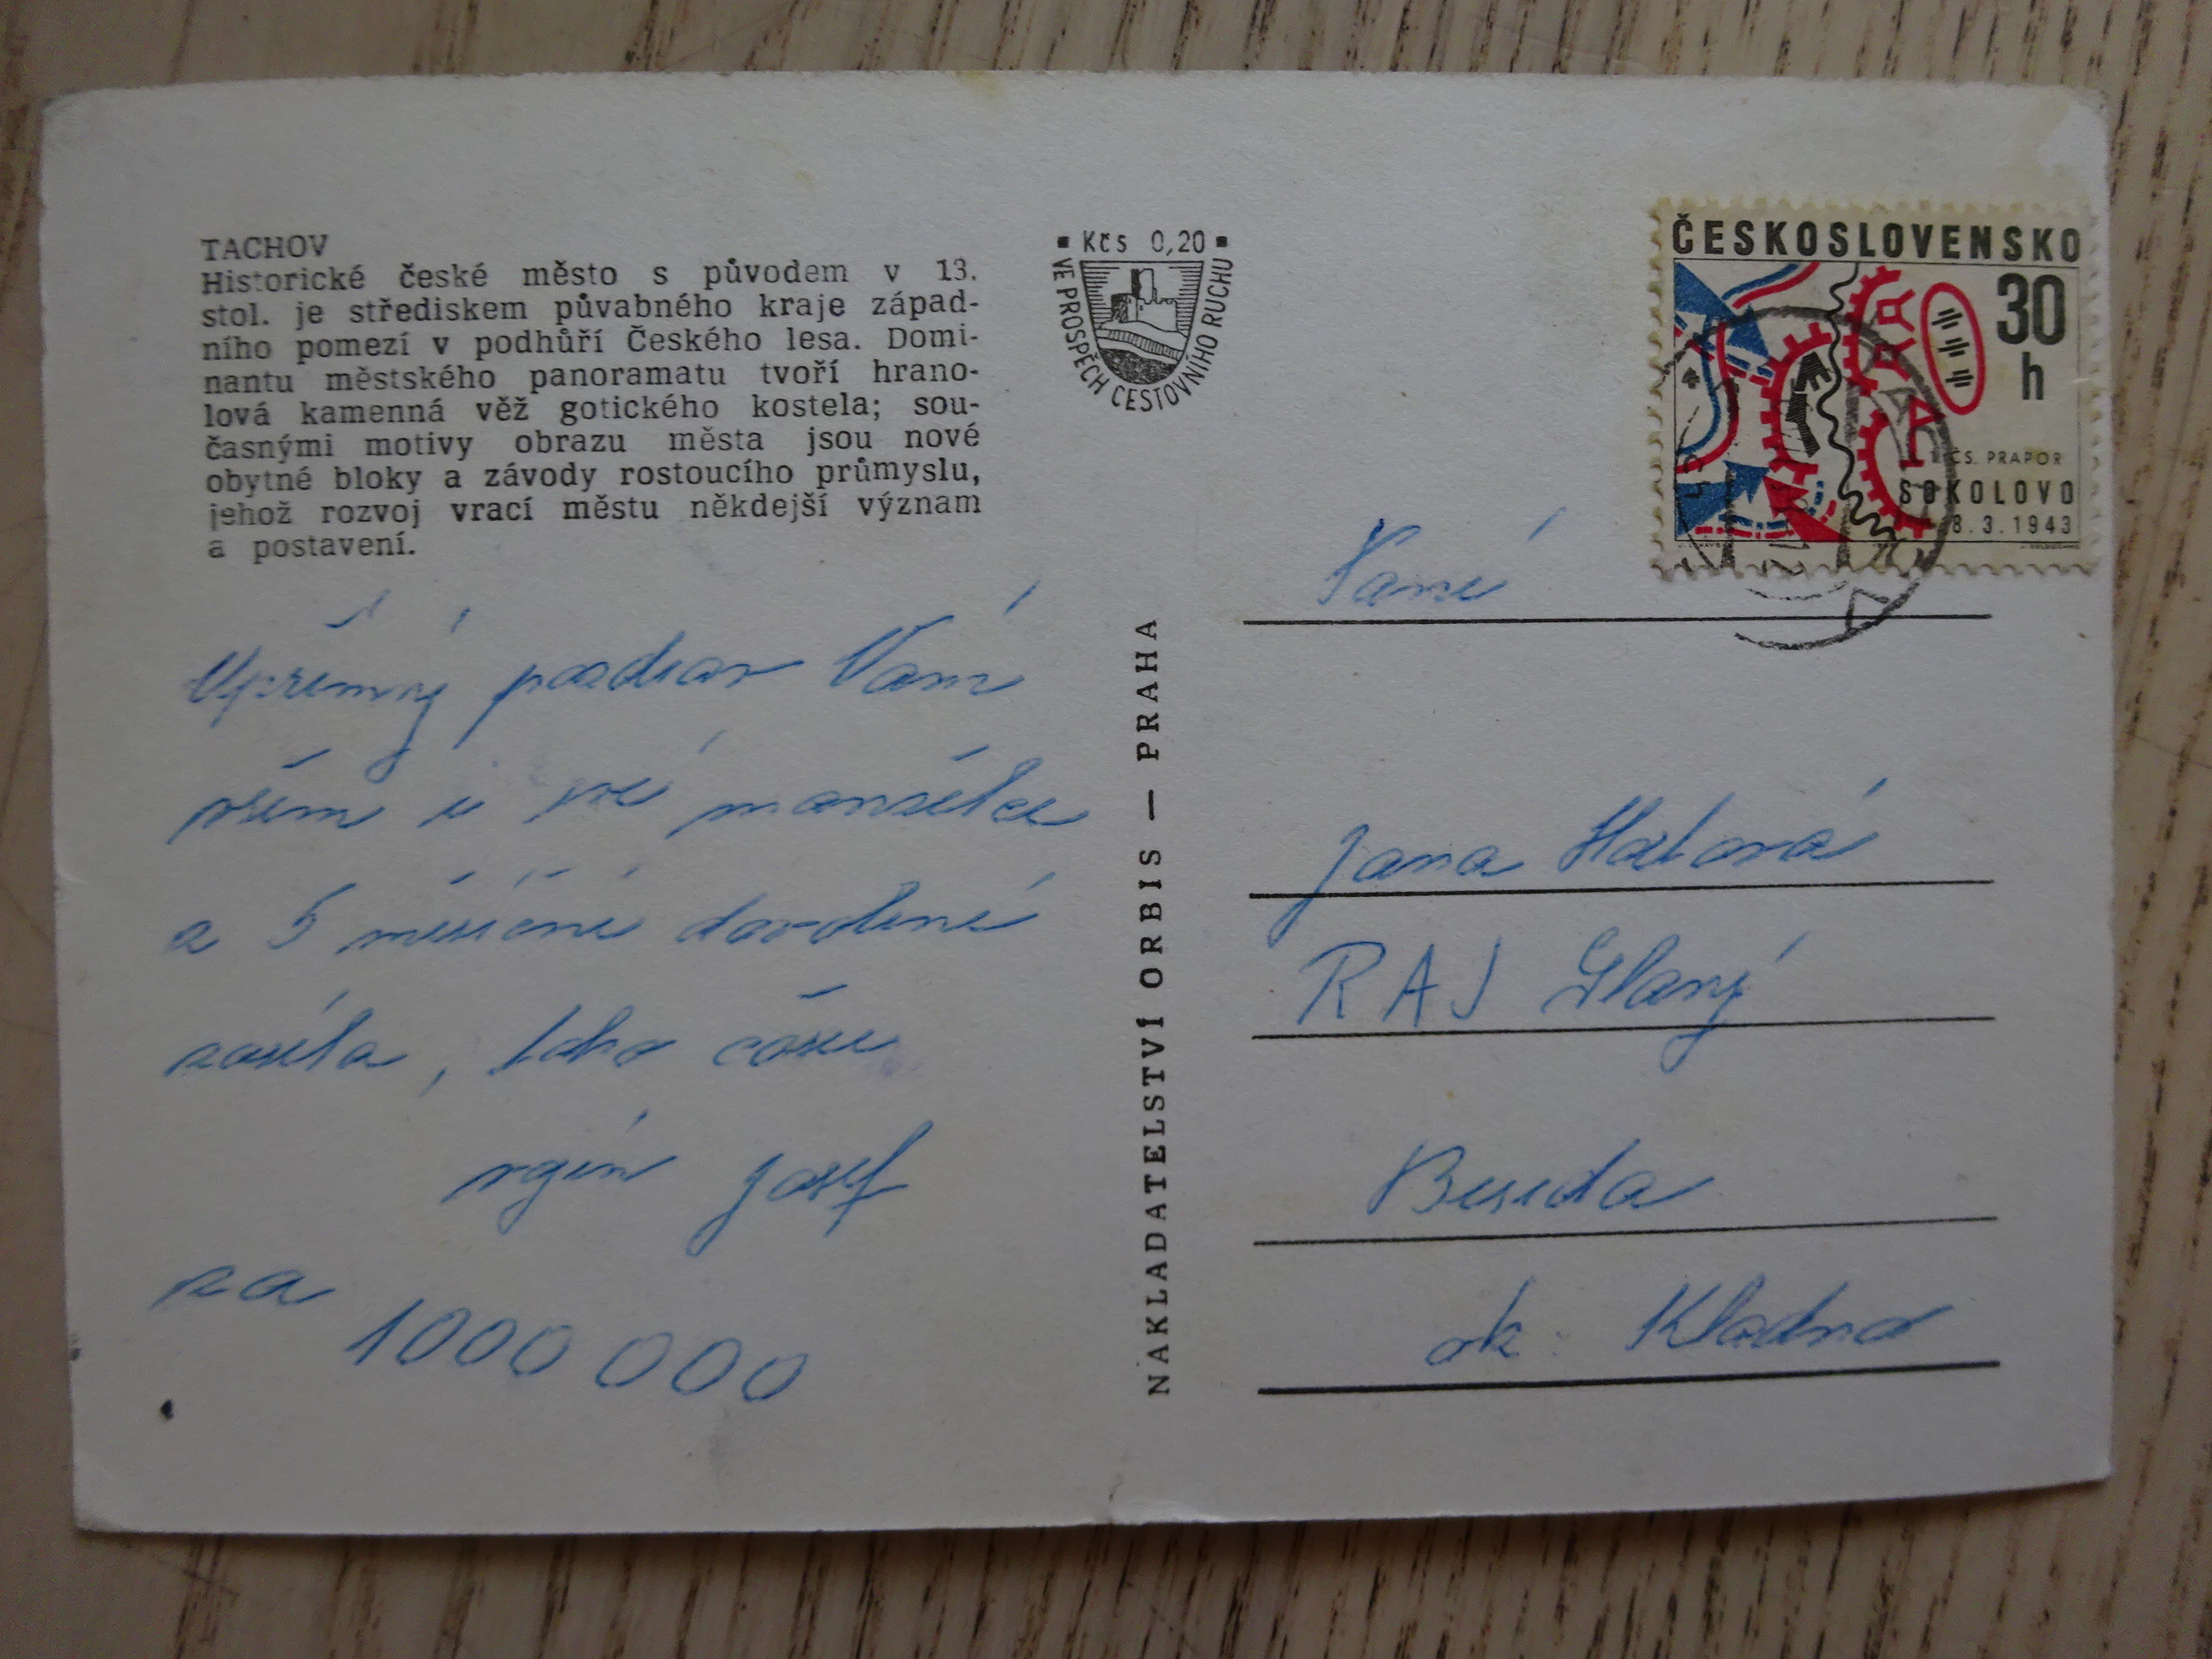 TACHOV
Historické české město s původem v 13.
stol. je střediskem půvabného kraje západ-
ního pomezí v podhůří Českého lesa. Domi-
nantu městského panoramatu tvoří hrano-
lová kamenná věž gotického kostela; sou-
časnými motivy obrazu města jsou nové
obytné bloky a závody rostoucího průmyslu,
jehož rozvoj vrací městu někdejší význam
a postavení.
▪ Kčs 0,20 ▪
VE PROSPĚCH CESTOVNÍHO RUCHU
ČESKOSLOVENSKO
30
h
1. ČS. PRAPOR
SOKOLOVO
8.3.1943
Upřímný pozdrav Vám
všem z mé
a 5 měsíční dovolené
zasílá, toho času
vojín Josef
za
1000 000
NAKLADATELSTVÍ ORBIS — PRAHA
Paní
Jana
RAJ Slaný
Beseda
ok. Kladno